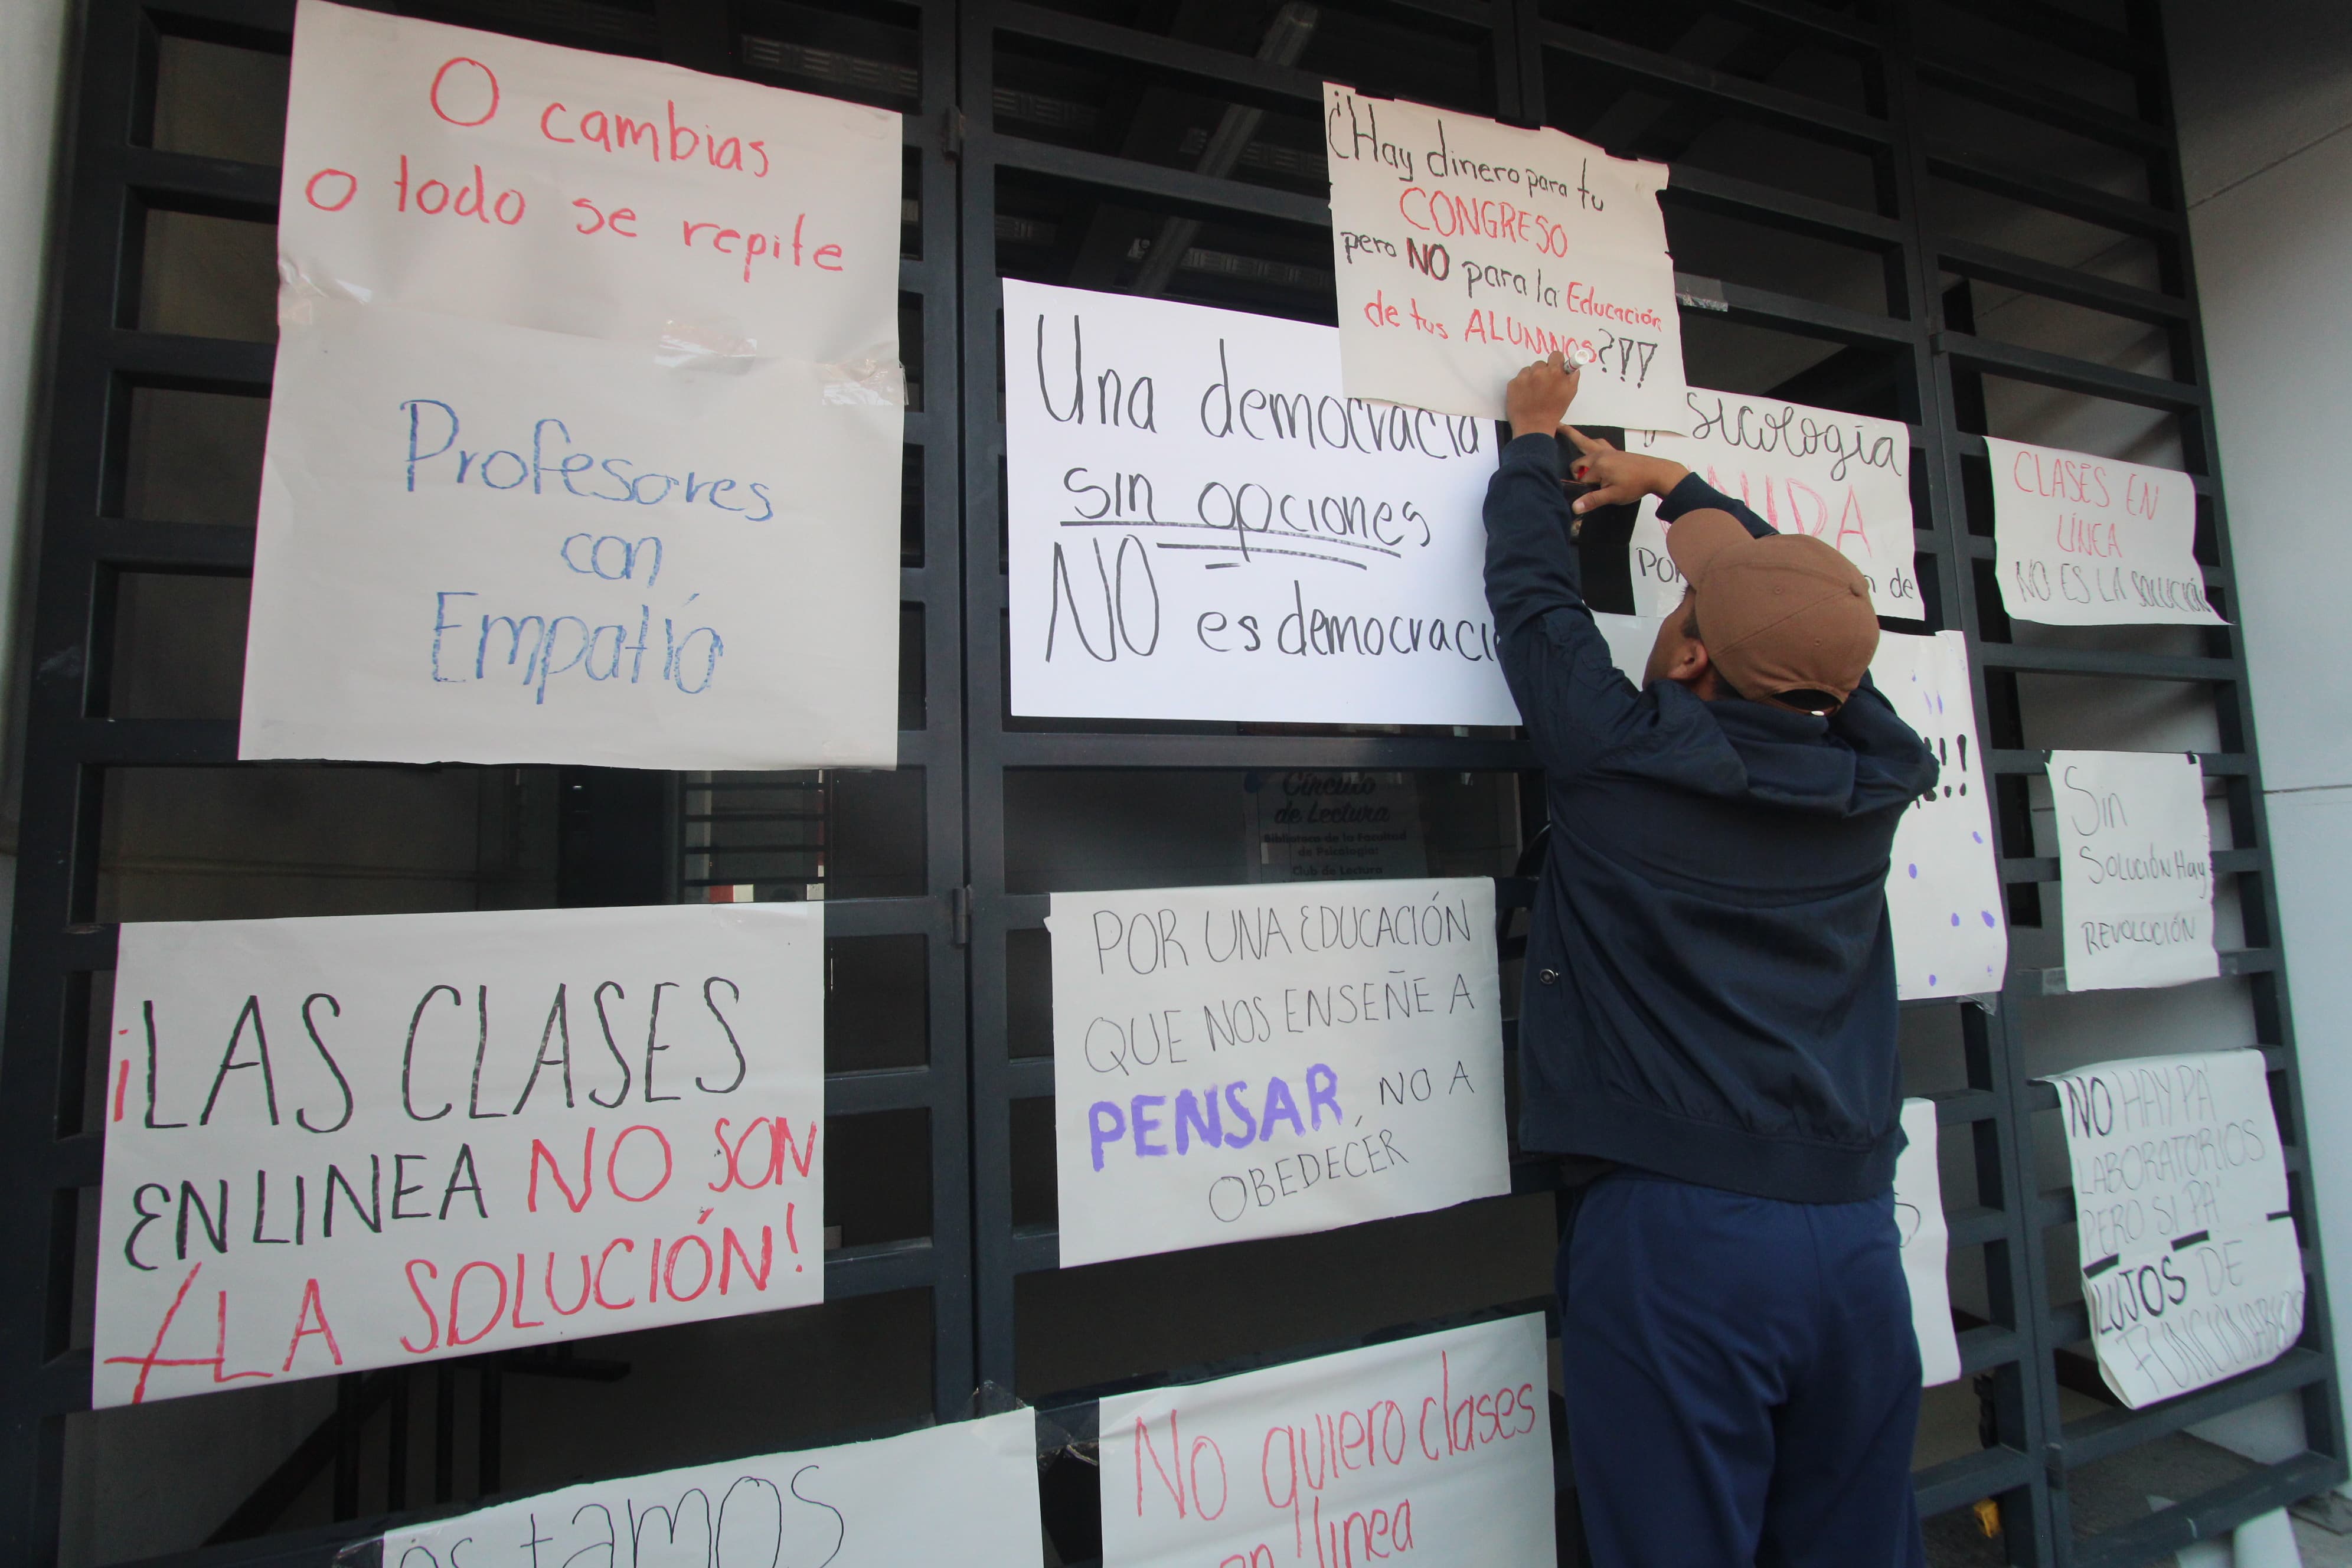 O cambias
o todo se repite
Profesores
con
Empatía
¡¿Hay dinero para tu
CONGRESO
pero NO para la Educación
de tus ALUMNOS?!!
Una democracia
sin opciones
NO es democraci
sicología
de
CLASES EN
LÍNEA
NO ES LA SOLUCIÓN
Círculo
de Lectura
Biblioteca de la Facultad
de Psicología:
Club de Lectura
Sin
SOLUCIÓN Hay
REVOLUCIÓN
¡LAS CLASES
EN LINEA NO SON
LA SOLUCIÓN!
POR UNA EDUCACIÓN
QUE NOS ENSEÑE A
PENSAR, NO A
OBEDECÉR
NO HAY PA'
LABORATORIOS
PERO SI PA'
LUJOS DE
FUNCIONARIOS
tamos
No quiero clases
en linea